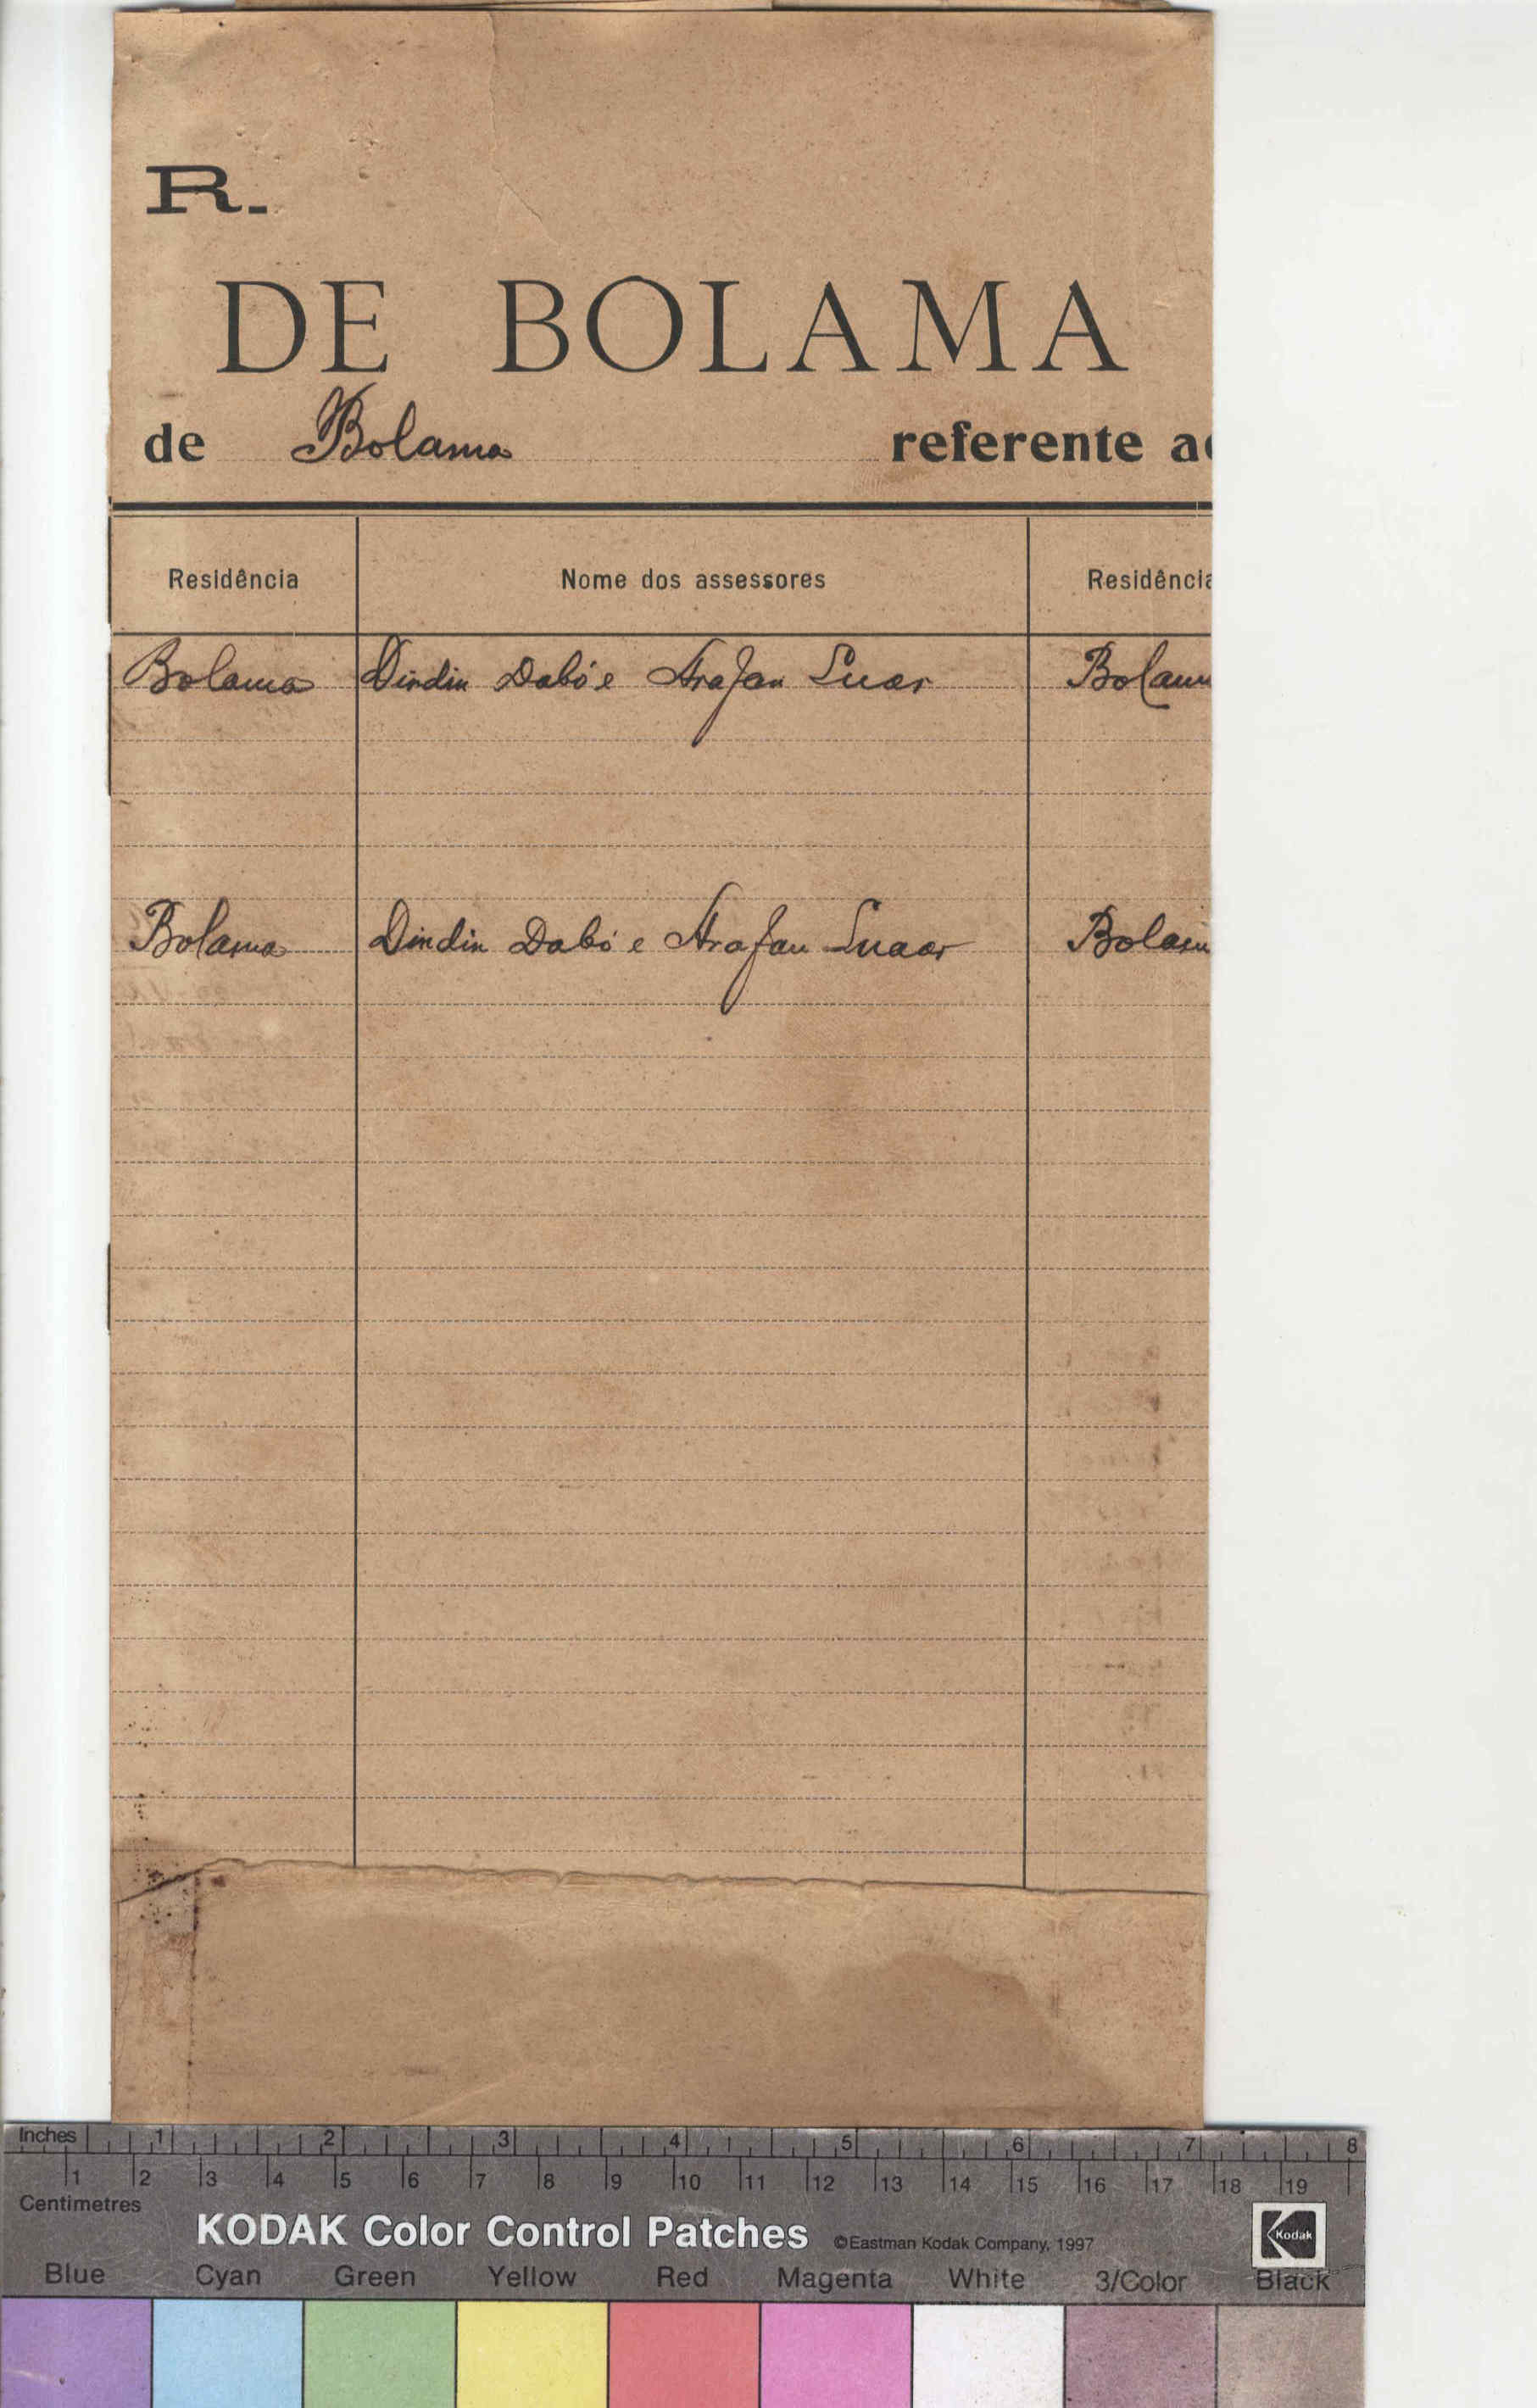 R.
DE BOLAMA
de Bolama referente a
Residência Nome dos assessores Residência
Bolama Dindin Dabó e Arafan Suar Bolam
Bolama Dindin Dabó e Arafan Suaar Bolam
Inches 1 2 3 4 5 6 7 8
1 2 3 4 5 6 7 8 9 10 11 12 13 14 15 16 17 18 19
Centimetres
KODAK Color Control Patches ©Eastman Kodak Company, 1997 Kodak
Blue Cyan Green Yellow Red Magenta White 3/Color Black